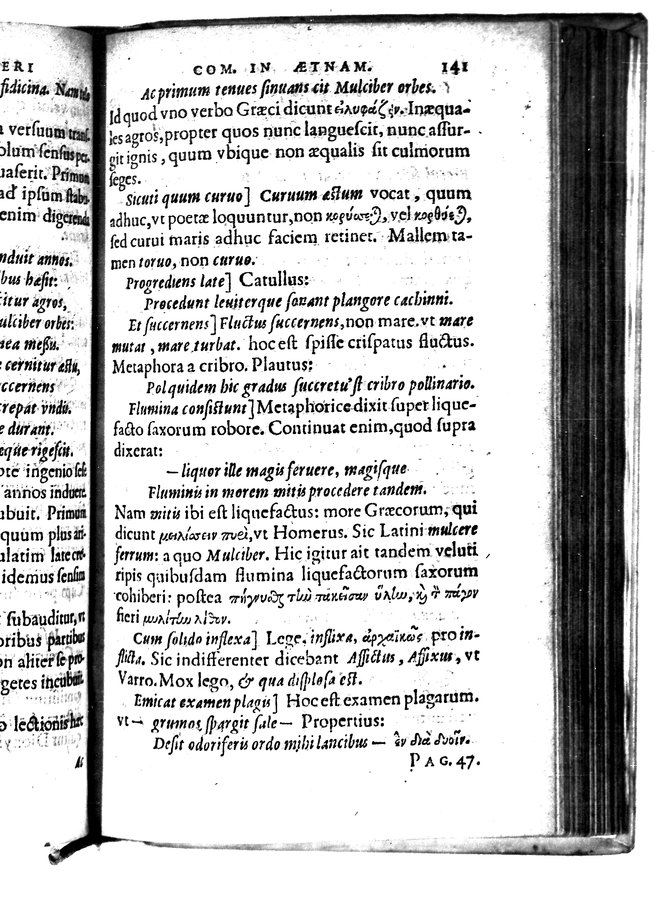 ERI
fidicina. Nam
versuum trans
olum sensus per
uaserit. Primum
ad ipsum
enim digerenda
nduit annos.
bus hæsit:
citur agros,
ulciber orbes:
nea messis.
e cernitur æstu,
ccernens
crepat vndis.
e durant.
eque rigescit.
ote ingenio
annos induere.
ubuit. Primum
quum plus
ulatim late
idemus sensim
subauditur, vt
oribus partibus
on aliter se pro-
getes incubuit.
o lectionis hæc
COM. IN ÆTNAM. 141
Ac primum tenues sinuans cit Mulciber orbes.
Id quod vno verbo Græci dicunt εἰλυφάζειν. Inæqua-
les agros, propter quos nunc languescit, nunc assur-
git ignis, quum vbique non æqualis sit culmorum
seges.
Sicuti quum curuo] Curuum æstum vocat, quum
adhuc, vt poetæ loquuntur, non κορύσσεται, vel κορθύεται,
sed curui maris adhuc faciem retinet. Mallem ta-
men toruo, non curuo.
Progrediens late] Catullus:
Procedunt leuiterque sonant plangore cachinni.
Et succernens] Fluctus succernens, non mare. vt mare
mutat, mare turbat. hoc est spisse crispatus fluctus.
Metaphora a cribro. Plautus:
Pol quidem hic gradus succretu'st cribro pollinario.
Flumina consistunt] Metaphorice dixit super lique-
facto saxorum robore. Continuat enim, quod supra
dixerat:
—liquor ille magis feruere, magisque
Fluminis in morem mitis procedere tandem.
Nam mitis ibi est liquefactus: more Græcorum, qui
dicunt μειλίσσειν πυεὶ, vt Homerus. Sic Latini mulcere
ferrum: a quo Mulciber. Hic igitur ait tandem veluti
ripis quibusdam flumina liquefactorum saxorum
cohiberi: postea πήγνυσθαι τὴν τακεῖσαν ὕλην, καὶ τὸν πάγον
fieri μυλίτην λίθον.
Cum solido inflexa] Lege, inflixa, ἀρχαϊκῶς pro in-
flicta. Sic indifferenter dicebant Afflictus, Affixus, vt
Varro. Mox lego, & qua displosa est.
Emicat examen plagis] Hoc est examen plagarum.
vt — grumos spargit sale — Propertius:
Desit odoriferis ordo mihi lancibus — ἓν διὰ δυοῖν.
PAG. 47.